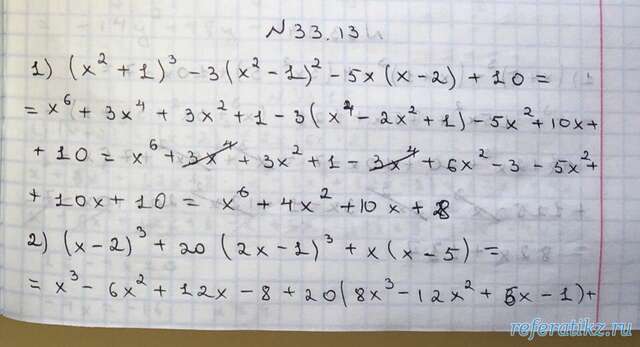 N 33.13
1) (x² + 1)³ - 3(x² - 1)² - 5x(x - 2) + 10 =
= x⁶ + 3x⁴ + 3x² + 1 - 3(x⁴ - 2x² + 1) - 5x² + 10x +
+ 10 = x⁶ + 3x⁴ + 3x² + 1 - 3x⁴ + 6x² - 3 - 5x² +
+ 10x + 10 = x⁶ + 4x² + 10x + 8
2) (x - 2)³ + 20(2x - 1)³ + x(x - 5) =
= x³ - 6x² + 12x - 8 + 20(8x³ - 12x² + 6x - 1) +
referatikz.ru